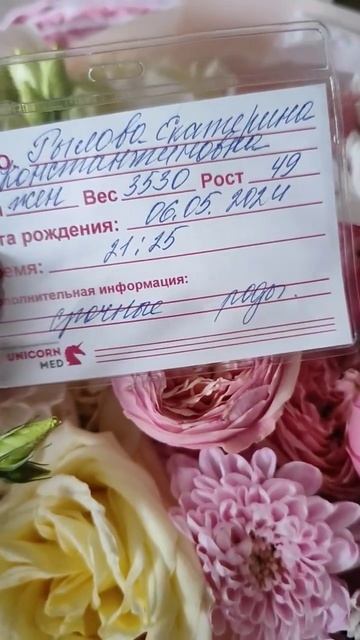 О. Рылова Екатерина
Константиновна
жен Вес 3530 Рост 49
та рождения: 06.05.2024
емя: 21:25
полнительная информация:
срочные роды.
UNICORN
MED